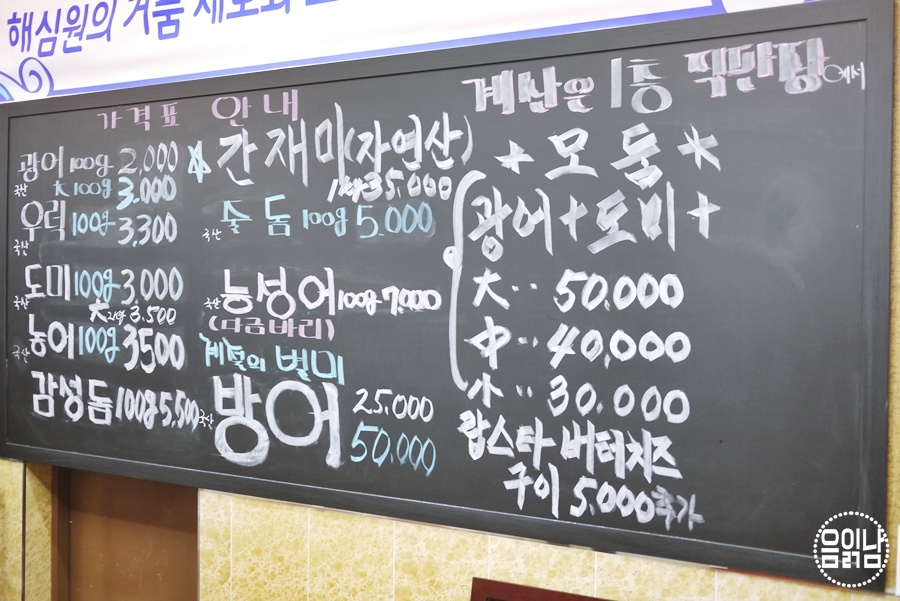 해심원의 거품
가격표 안내
광어 100g 2,000
국산 大 100g 3.000
우럭 100g 3,300
국산
도미 100g 3,000
국산
大 3.500
농어 100g 3500
국산
감성돔 100g 5,500
국산
간재미(자연산)
1kg 35.000
줄돔 100g 5.000
국산
능성어 100g 7,000
국산
(다금바리)
계절의 별미
방어 25.000
50,000
계산은 1층 떡반장에서
+모둠*
광어+도미+
大‥50.000
中‥40,000
小‥30.000
랍스타 버터치즈
구이 5.000추가
맘이읽남